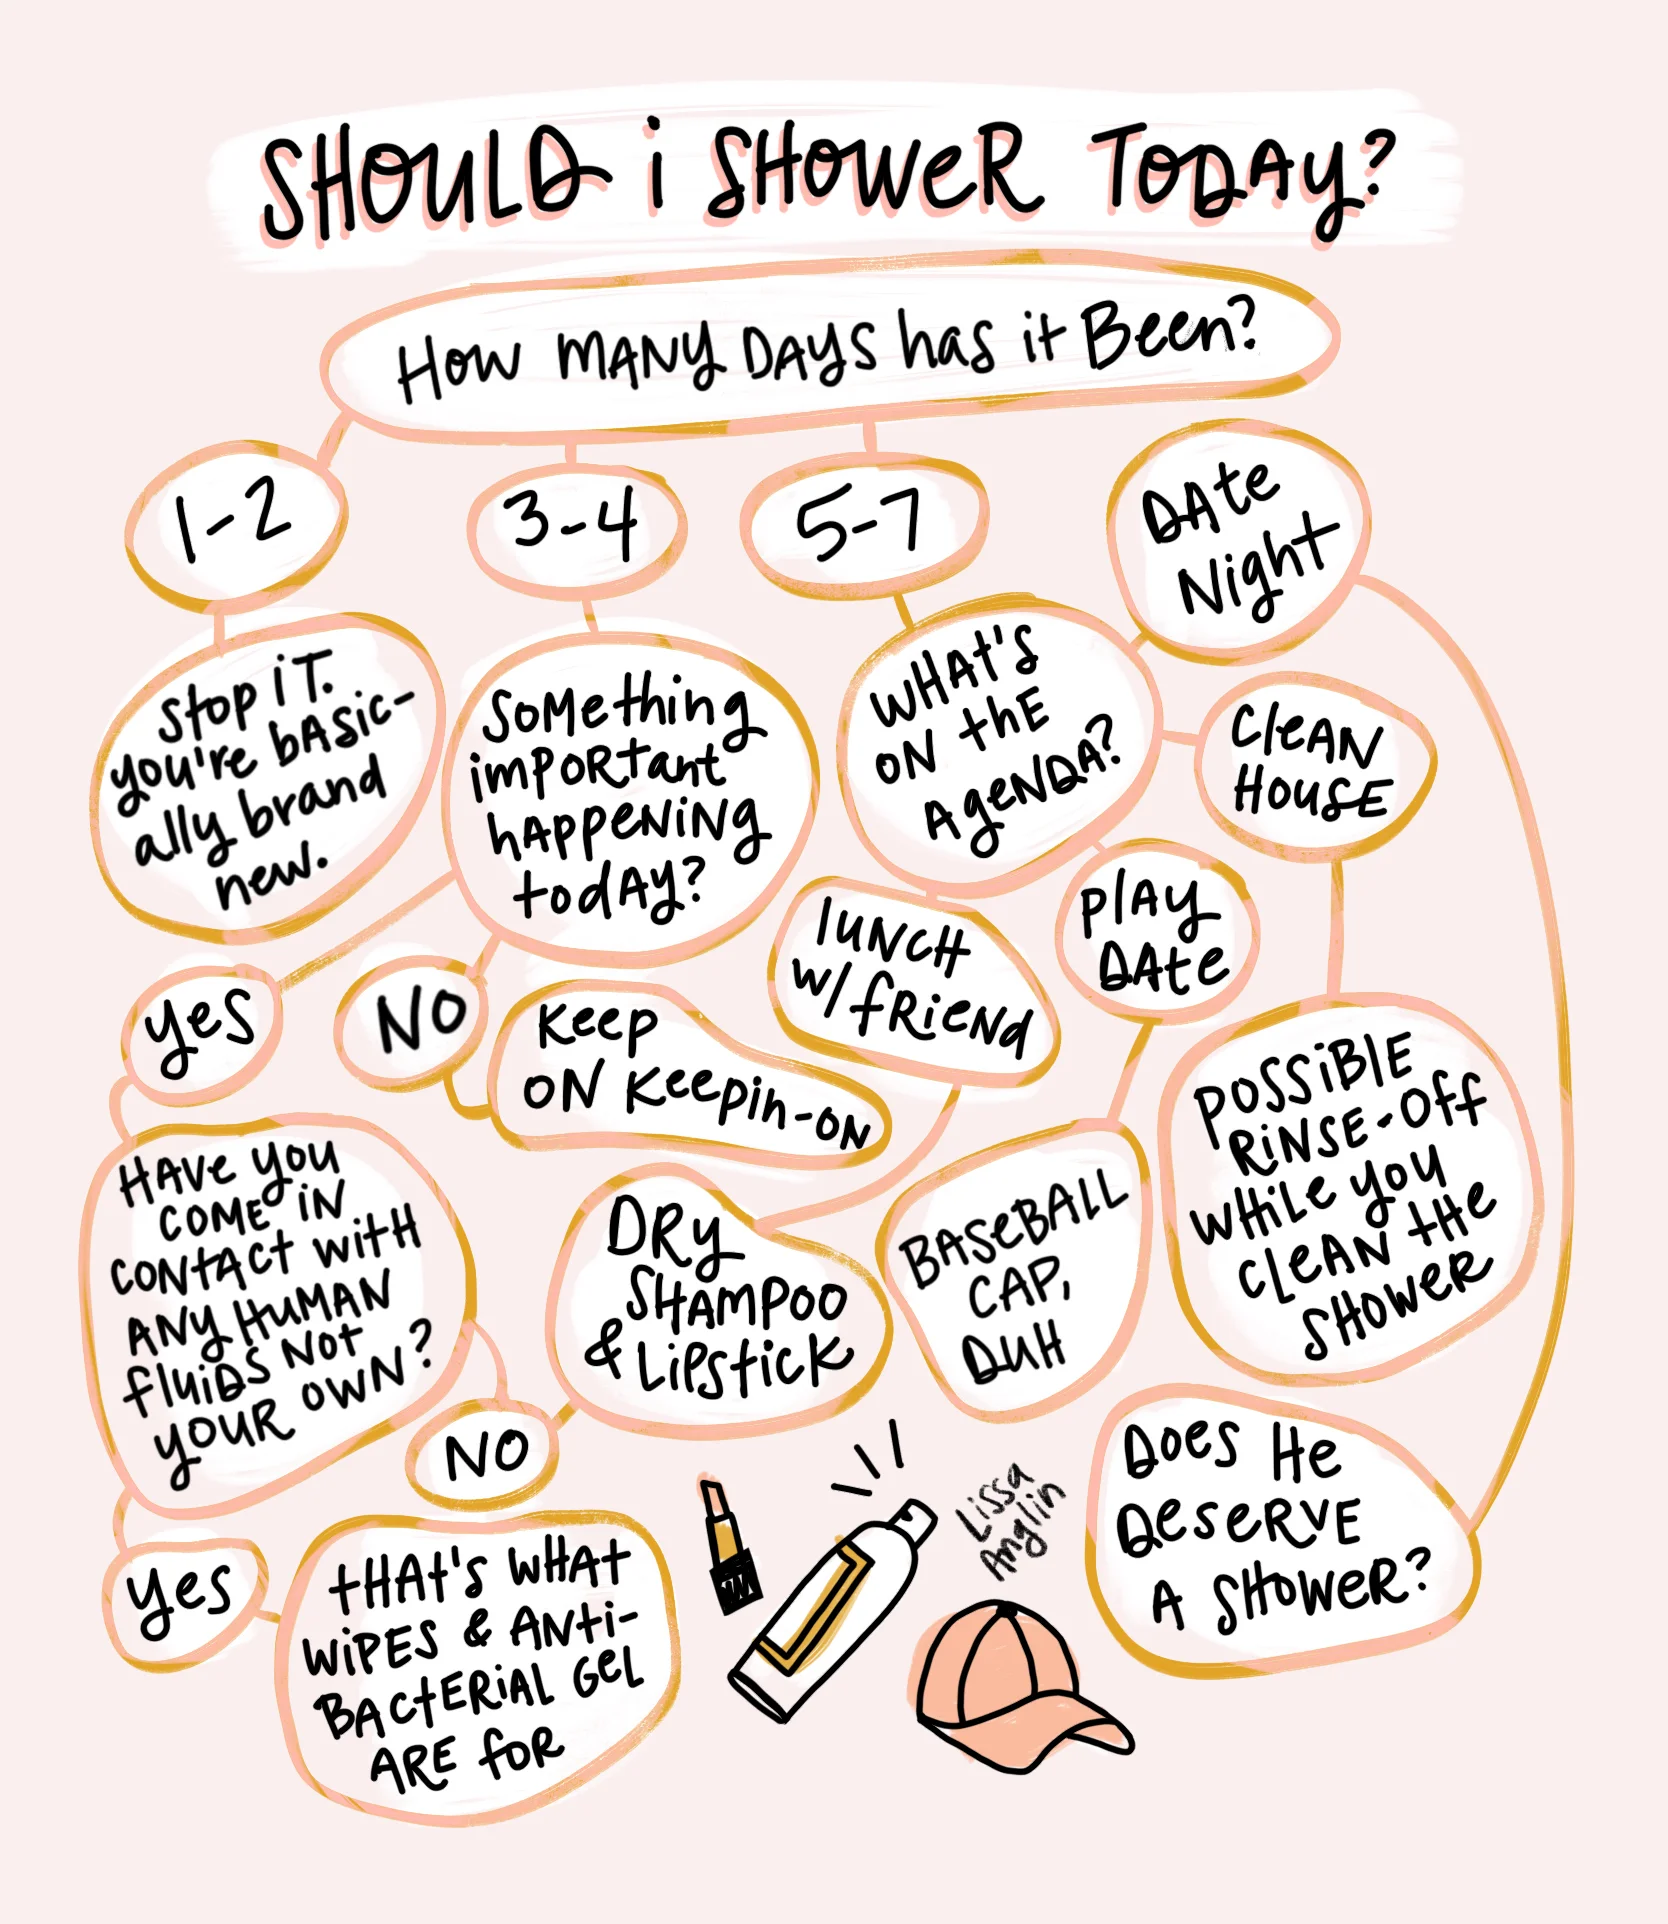 SHOULD i SHOWeR TODAy?
How MANy DAyS has it Been?
1-2
3-4
5-7
DAte
Night
Stop iT.
you're bASic-
ally brand
new.
SoMething
imPORtant
hAppeNiNg
todAy?
WHAt's
ON thE
AgeNDA?
CleAN
HOUSE
plAy
DAte
lUNCH
w/ fRieNd
yes
NO
Keep
ON Keepin-ON
HAVe you
COME iN
CONtACt witH
ANy HuMAN
fluiDS Not
yOUR OWN?
DRy
SHAMPOO
& LiPStick
BASeBALL
CAP,
DUH
POSSiBlE
RiNSE-Off
WHiLe yOU
CleAN tHe
SHOweR
NO
yes
tHAt's WHAt
WiPES & ANti-
BACtERiAL Gel
ARE foR
Does He
DeseRVE
A SHOWeR?
Lissa
Anglin